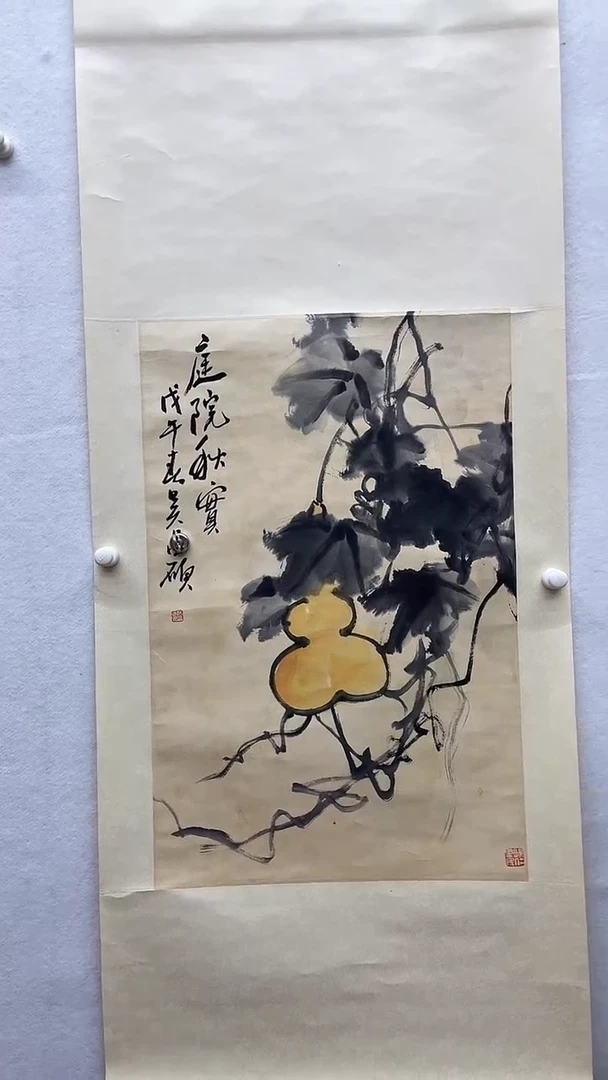 庭院秋實
戊午春吴昌硕